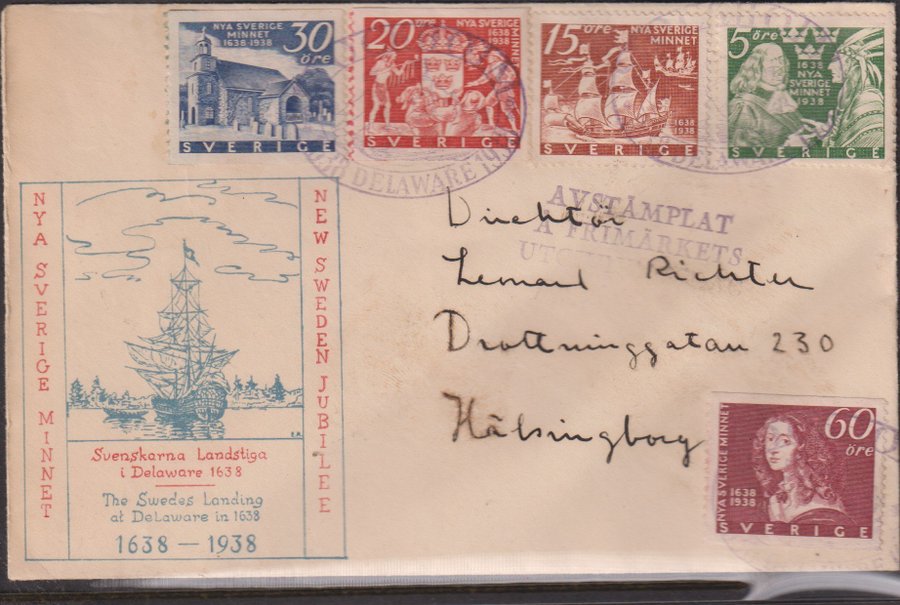 NYA SVERIGE
MINNET
1638-1938
30
öre
SVERIGE
20 öre
NYA SVERIGE
MINNET
SVERIGE
15 öre
NYA SVERIGE
MINNET
1638
1938
SVERIGE
5 öre
1638
NYA
SVERIGE
MINNET
1938
SVERIGE
DELAWARE
DELAWARE
AVSTÄMPLAT
Å FRIMÄRKETS
Direktör
Lennart Richter
Drottninggatan 230
Hälsingborg
NYA SVERIGE MINNET
NEW SWEDEN JUBILEE
Svenskarna Landstiga
i Delaware 1638
The Swedes Landing
at DeLaware in 1638
1638 — 1938
NYA SVERIGE MINNET
60
öre
1638
1938
SVERIGE